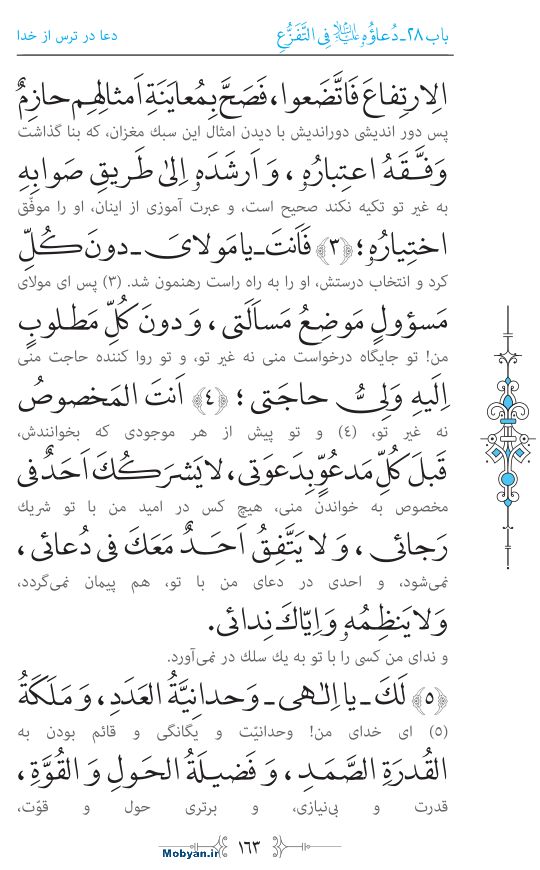 باب ۲۸ـ دُعاؤُهُ علیه‌السلام فِی التَّفَزُّعِ
دعا در ترس از خدا
الِارتِفاعَ فَاتَّضَعوا، فَصَحَّ بِمُعایَنَةِ اَمثالِهِم حازِمٌ
پس دور اندیشی دوراندیش با دیدن امثال این سبك مغزان، كه بنا گذاشت
وَفَّقَهُ اعتِبارُهُ، وَ اَرشَدَهُ اِلیٰ طَریقِ صَوابِهِ
به غیر تو تكیه نكند صحیح است، و عبرت آموزی از اینان، او را موفّق
اختِیارُهُ؛ ﴿۳﴾ فَاَنتَ ـ یا مَولایَ ـ دونَ كُلِّ
كرد و انتخاب درستش، او را به راه راست رهنمون شد. (۳) پس ای مولای
مَسؤولٍ مَوضِعُ مَساَلَتی، وَ دونَ كُلِّ مَطلوبٍ
من! تو جایگاه درخواست منی نه غیر تو، و تو روا كننده حاجت منی
اِلَیهِ وَلِیُّ حاجَتی؛ ﴿٤﴾ اَنتَ المَخصوصُ
نه غیر تو، (۴) و تو پیش از هر موجودی كه بخوانندش،
قَبلَ كُلِّ مَدعُوٍّ بِدَعوَتی، لا یَشرَكُكَ اَحَدٌ فی
مخصوص به خواندن منی، هیچ كس در امید من با تو شریك
رَجائی، وَ لا یَتَّفِقُ اَحَدٌ مَعَكَ فی دُعائی،
نمی‌شود، و احدی در دعای من با تو، هم پیمان نمی‌گردد،
وَ لا یَنظِمُهُ وَ اِیّاكَ نِدائی.
و ندای من كسی را با تو به یك سلك در نمی‌آورد.
﴿۵﴾ لَكَ ـ یا اِلٰهی ـ وَحدانِیَّةُ العَدَدِ، وَ مَلَكَةُ
(۵) ای خدای من! وحدانیّت و یگانگی و قائم بودن به
القُدرَةِ الصَّمَدِ، وَ فَضیلَةُ الحَولِ وَ القُوَّةِ،
قدرت و بی‌نیازی، و برتری حول و قوّت،
۱۶۳
Mobyan.ir